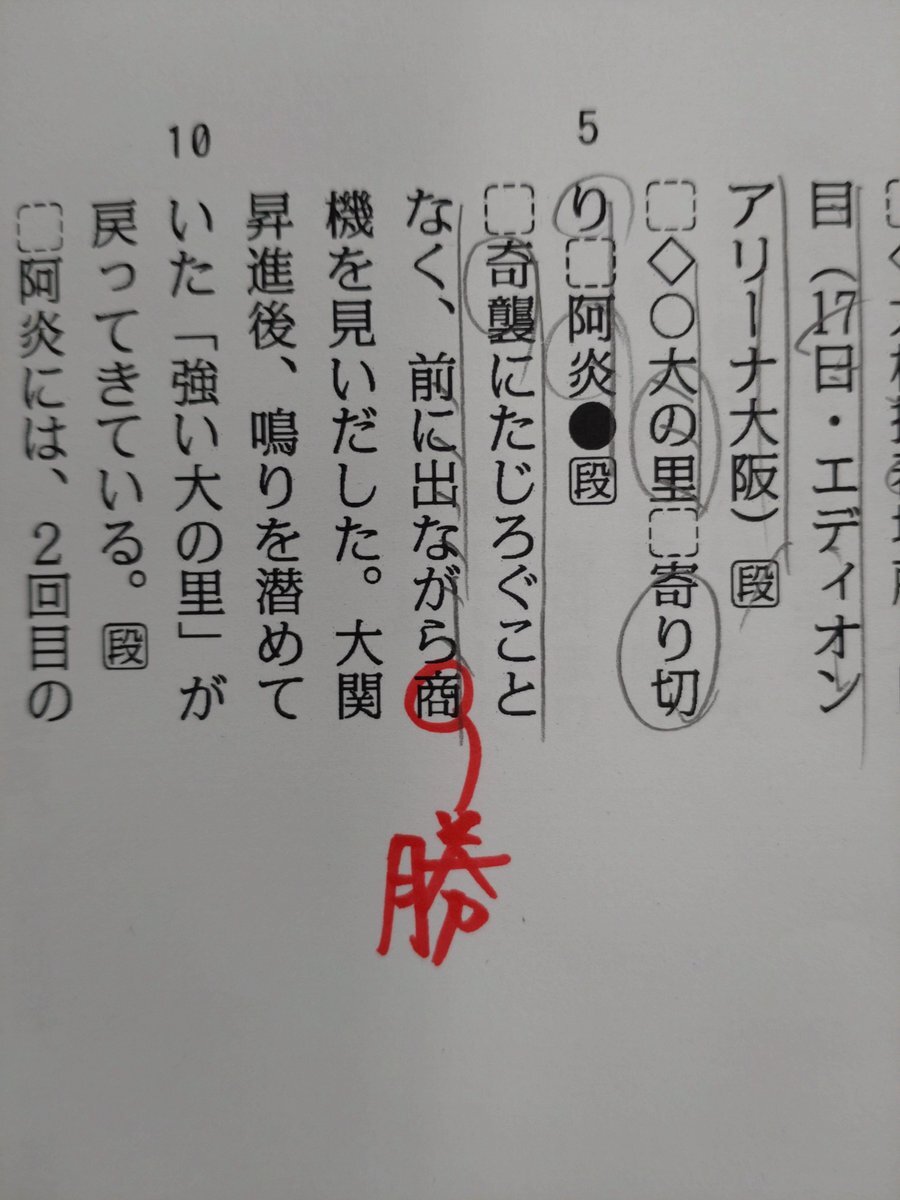 目（17日・エディオン
アリーナ大阪）段
◇○大の里 寄り切
り 阿炎●段
奇襲にたじろぐこと
なく、前に出ながら商
機を見いだした。大関
昇進後、鳴りを潜めて
いた「強い大の里」が
戻ってきている。段
阿炎には、2回目の
5
10
勝